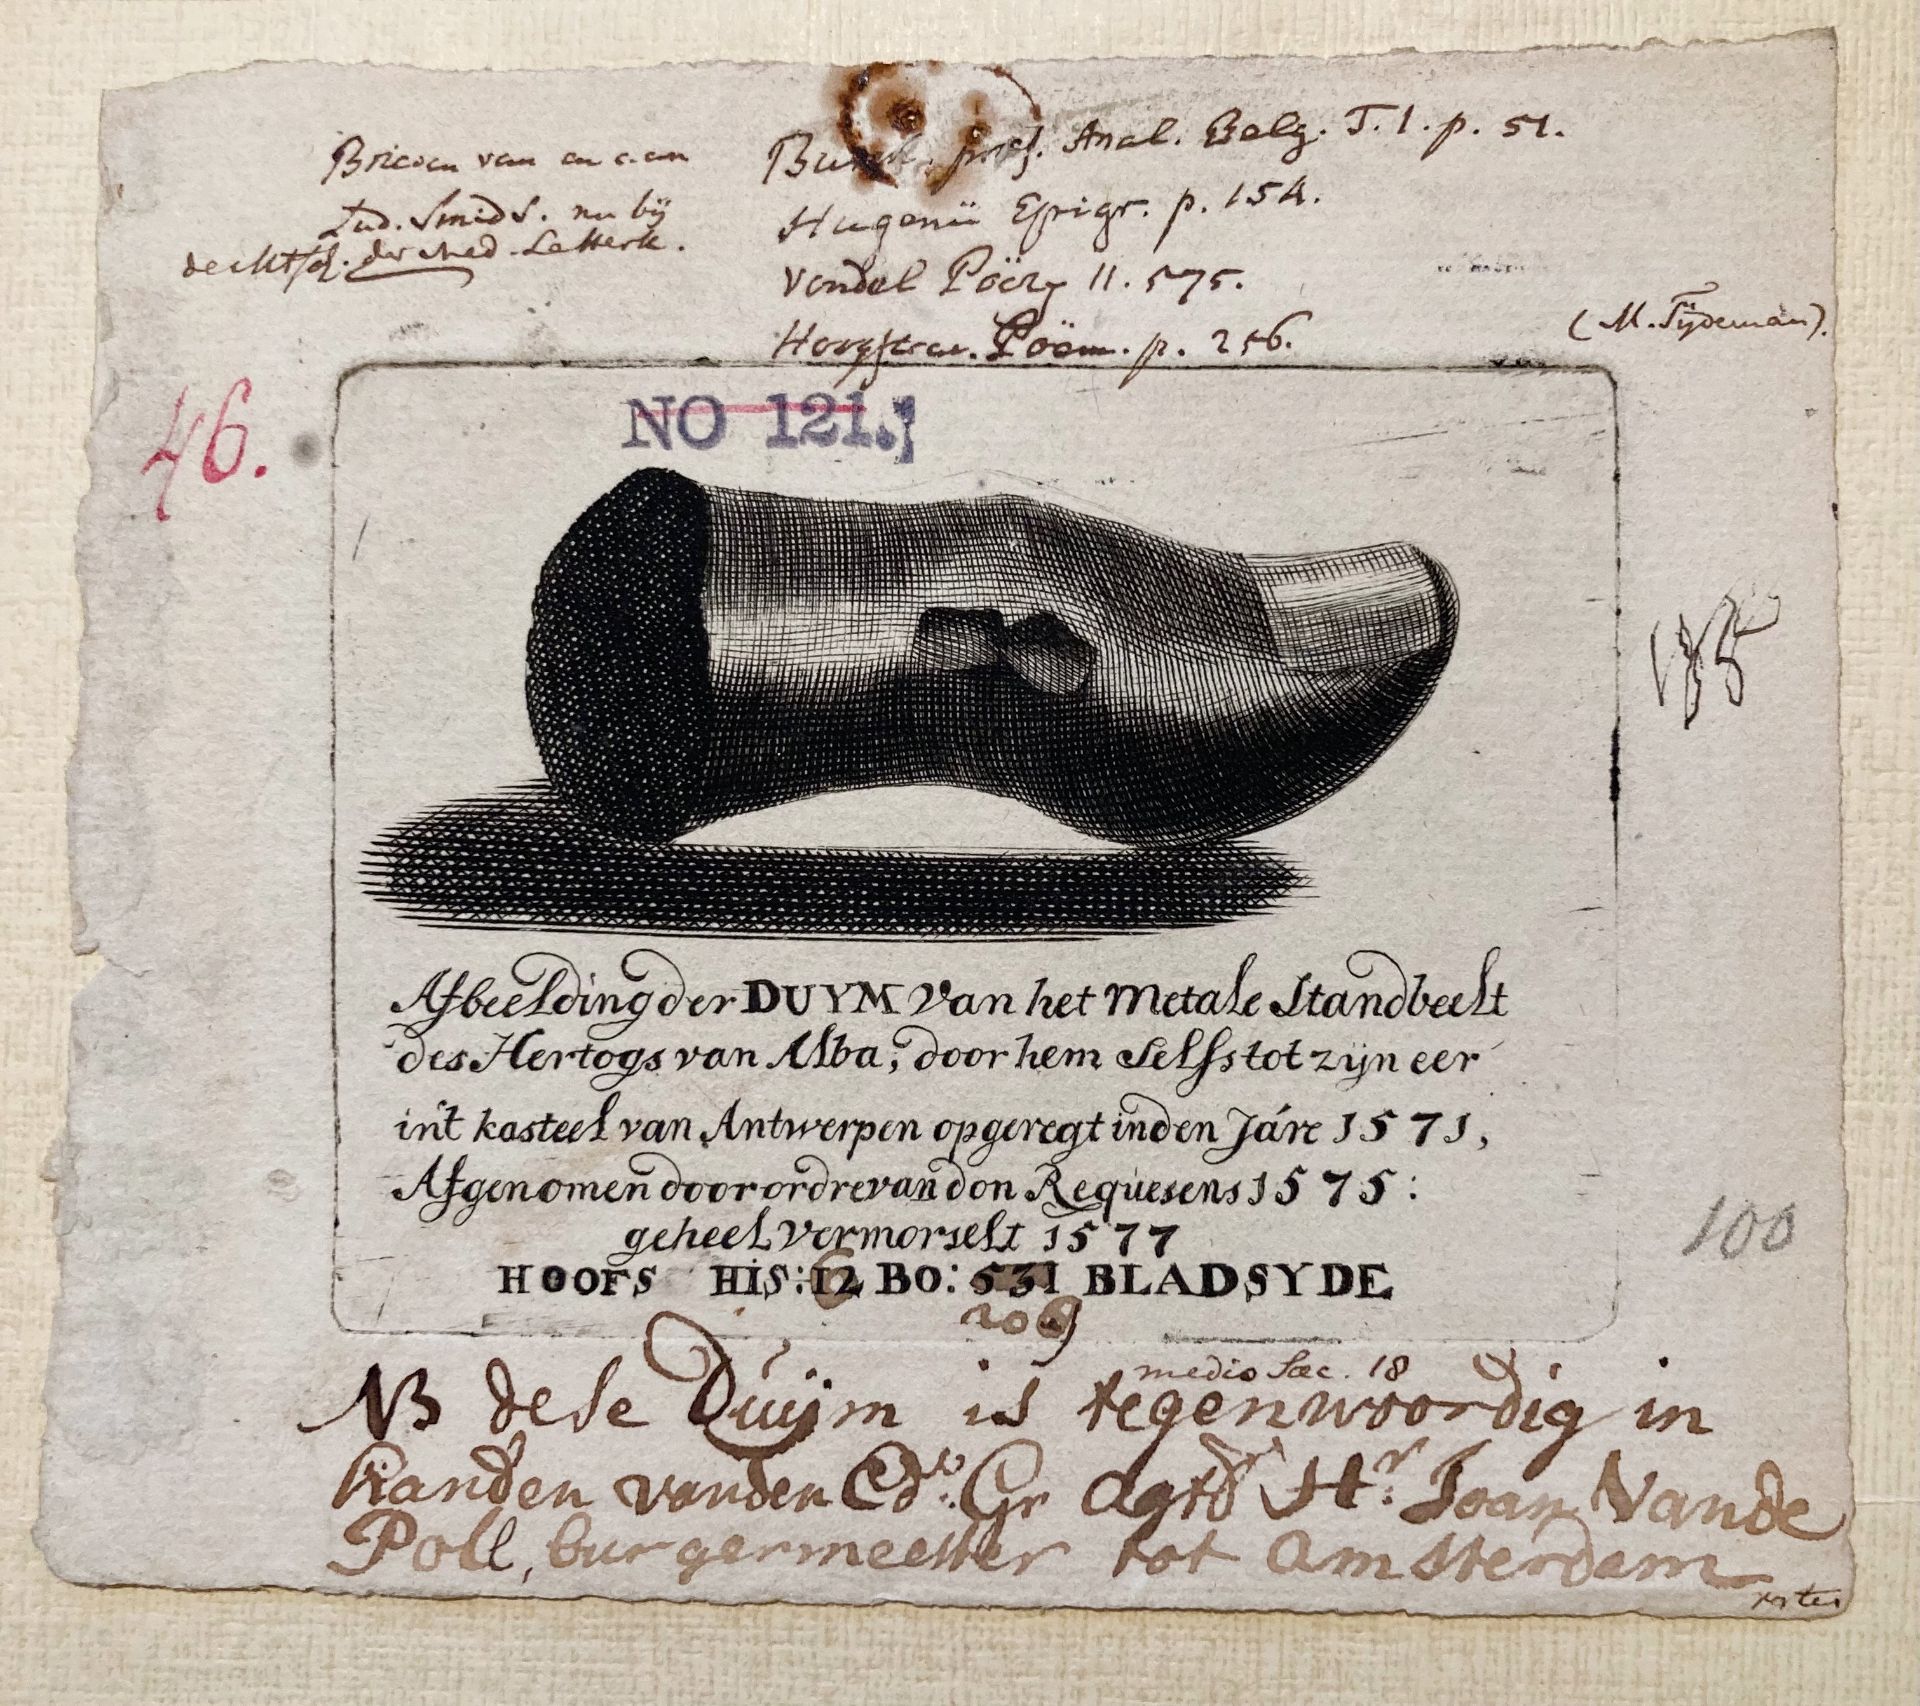 Brieven van en aan
Lud. Smids. nu bij
de Mtsch. der Ned. Letterk.
Burm. præf. Anal. Belg. T. 1. p. 51.
Hugenii Epigr. p. 154.
Vondel Poëzy 11. 575.
Hoogstrat. Poëm. p. 256.
(M. Tijdeman).
46.
NO 121.
Afbeelding der DUYM van het Metale Standbeelt
des Hertogs van Alba, door hem Selfs tot zijn eer
int kasteel van Antwerpen opgeregt in den Járe 1571,
Afgenomen door ordre van don Requesens 1575:
geheel vermorselt 1577
HOOFS HIS: 12 BO: 531 BLADSYDE
206
100
medio Sæc. 18
NB dese Duijm is tegenwoordig in
handen vanden Ed: Gr Agtb Hr: Joan Vande
Poll, burgermeester tot Amsterdam